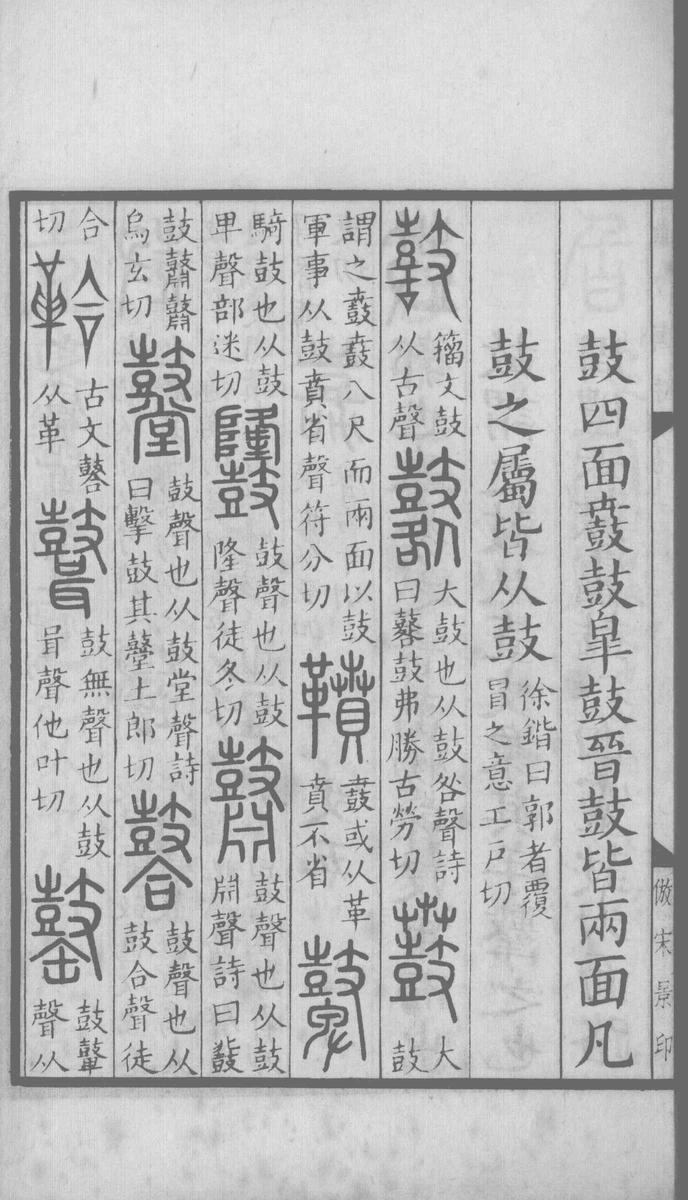 倣宋景印
鼓四面鼖鼓皐鼓晉鼓皆兩面凡
鼓之屬皆从鼓
徐鍇曰郭者覆
冒之意工戶切
籀文鼓
从古聲
鼛
大鼓也从鼓咎聲詩
曰鼛鼓弗勝古勞切
鼖
大
鼓
謂之鼖鼖八尺而兩面以鼓
軍事从鼓賁省聲符分切
鼖或从革
賁不省
鼙
騎鼓也从鼓
卑聲部迷切
鼓聲也从鼓
隆聲徒冬切
鼘
鼓聲也从鼓
𣶒聲詩曰鼗
鼓鼘鼘
烏玄切
鼞
鼓聲也从鼓堂聲詩
曰擊鼓其鼞土郎切
鼓聲也从
鼓合聲徒
合
切
古文
从革
鼓無聲也从鼓
咠聲他叶切
鼓鼙
聲从